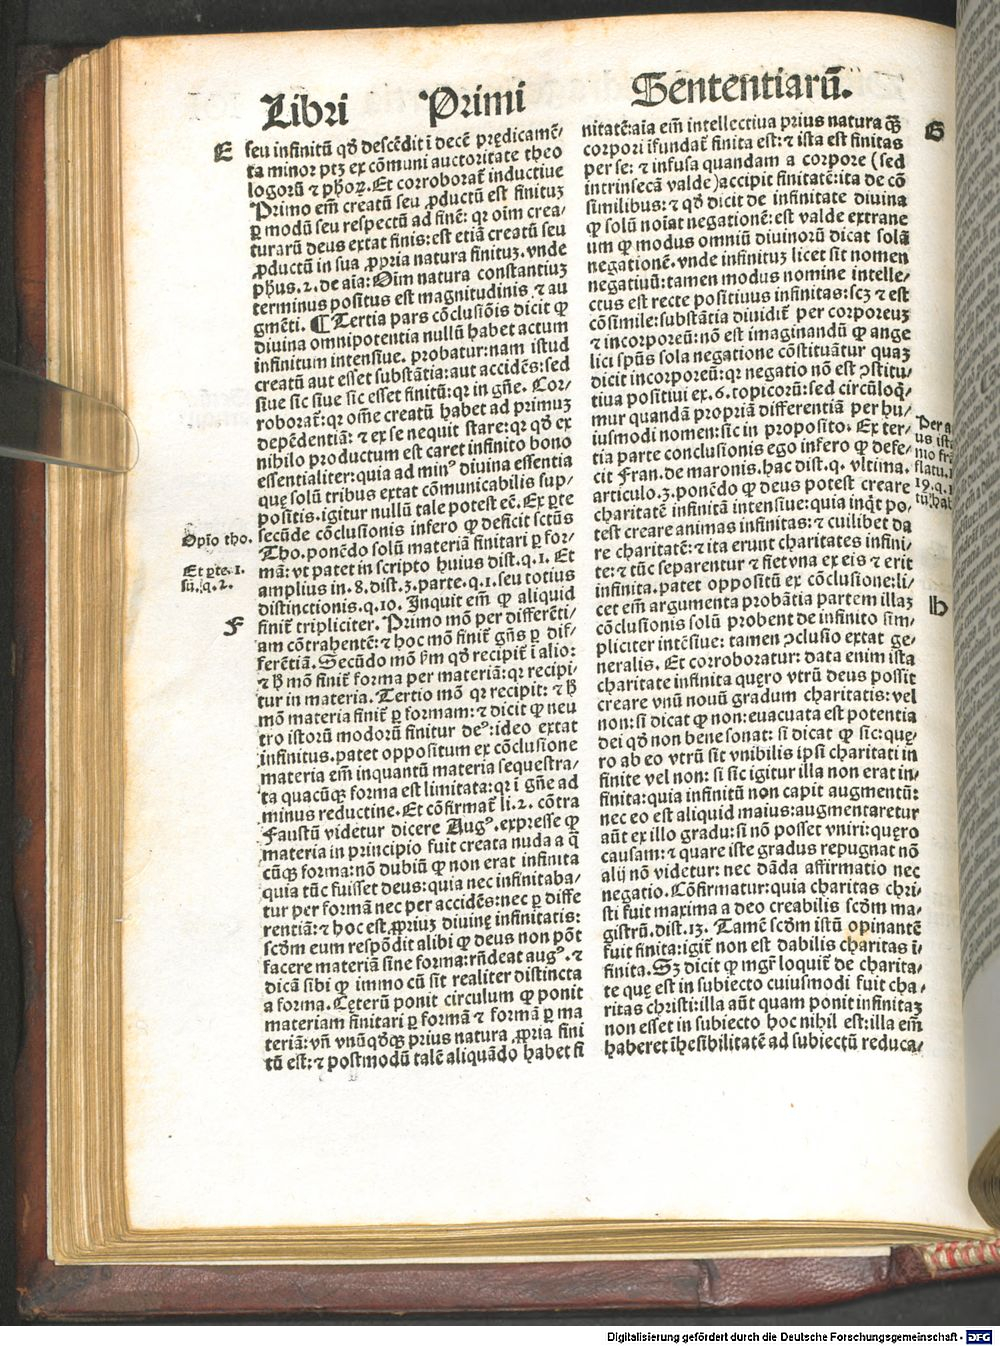 Libri Primi Sententiarū.
E
seu infinitū qḋ descēdit ī decē prędicamē/
ta minor ptꝫ ex cōmuni auctoritate theo
logorū ⁊ phoꝝ. Et corroborat̄ inductiue
Primo em̄ creatū seu ꝓductū est finituꝫ
ꝑ modū seu respectū ad finē: qꝛ oīm crea/
turarū deus extat finis: est etiā creatū seu
ꝓductū in sua ꝓpria natura finituꝫ. vnde
phus. 2. de aīa: Oīm natura constantiuꝫ
terminus positus est magnitudinis ⁊ au
gmēti. ¶ Tertia pars cōclusiōis dicit ꝙ
diuina omnipotentia nullū habet actum
infinitum intensiue. probatur: nam istud
creatū aut esset substātia: aut accidēs: sed
siue sic siue sic esset finitū: qꝛ in gn̄e. Cor/
roborat̄: qꝛ om̄e creatū habet ad primuꝫ
depēdentiā: ⁊ ex se nequit stare: qꝛ qḋ ex
nihilo productum est caret infinito bono
essentialiter: quia ad minꝰ diuina essentia
quę solū tribus extat cōmunicabilis sup/
positis. igitur nullū tale potest eē. Ex ꝑte
secūde cōclusionis infero ꝙ deficit sctūs
Tho. ponēdo solū materiā finitari ꝑ for/
mā: vt patet in scripto huius dist. q. 1. Et
amplius in. 8. dist. 3. parte. q. 1. seu totius
distinctionis. q. 10. Inquit em̄ ꝙ aliquid
finit̄ tripliciter. Primo mō per differēti/
am cōtrahentē: ⁊ hoc mō finit̄ gn̄s ꝑ dif/
ferētiā. Secūdo mō ẜm qḋ recipit̄ ī alio:
⁊ ħ mō finit̄ forma per materiā: qꝛ recipi/
tur in materia. Tertio mō qꝛ recipit: ⁊ ħ
mō materia finit̄ ꝑ formam: ⁊ dicit ꝙ neu
tro istorū modorū finitur deꝰ: ideo extat
infinitus. patet oppositum ex cōclusione
materia em̄ inquantū materia sequestra/
ta quacūqꝫ forma est limitata: qꝛ ī gn̄e ad
minus reductine. Et cōfirmat̄ li. 2. cōtra
Faustū videtur dicere Augꝰ. expresse ꝙ
materia in principio fuit creata nuda a q̄
cūqꝫ forma: nō dubiū ꝙ non erat infinita
quia tūc fuisset deus: quia nec infinitaba/
tur per formā nec per accidēs: nec ꝑ diffe
rentiā: ⁊ hoc est ꝓpriuꝫ diuinę infinitatis:
scḋm eum respōdit alibi ꝙ deus non pōt
facere materiā sine forma: rn̄deat augꝰ. ⁊
dicā sibi ꝙ immo cū sit realiter distincta
a forma. Cęterū ponit circulum ꝙ ponit
materiam finitari ꝑ formā ⁊ formā ꝑ ma
teriā: vn̄ vnūqḋqꝫ prius natura ꝓpria fini
tū est: ⁊ postmodū talē aliquādo habet fi
Opīo tho.
Et ꝑte. 1.
sū. q. 2.
F
nitatē: aīa em̄ intellectiua prius natura ꝙ̄
corpori īfundat̄ finita est: ⁊ ista est finitas
per se: ⁊ infusa quandam a corpore (sed
intrinsecā valde) accipit finitatē: ita de cō
similibus: ⁊ qḋ dicit de infinitate diuina
ꝙ solū noīat negationē: est valde extrane
um ꝙ modus omniū diuinorū dicat solā
negationē. vnde infinituꝫ licet sit nomen
negatiuū: tamen modus nomine intelle/
ctus est recte positiuus infinitas: scꝫ ⁊ est
cōsimile: substātia diuidit̄ per corporeuꝫ
⁊ incorporeū: nō est imaginandū ꝙ ange
lici spūs sola negatione cōstituātur quaꝫ
dicit incorporeū: qꝛ negatio nō est ꝯstitu/
tiua positiui ex. 6. topicorū: sed circūloq̄/
mur quandā propriā differentiā per hu/
iusmodi nomen: sic in proposito. Ex ter/
tia parte conclusionis ego infero ꝙ defe/
cit Fran. de maronis. hac dist. q. vltima.
articulo. 3. ponēdo ꝙ deus potest creare
charitatē infinitā intensiue: quia inqt po/
test creare animas infinitas: ⁊ cuilibet da
re charitatē: ⁊ ita erunt charitates infini/
te: ⁊ tūc separentur ⁊ fiet vna ex eis ⁊ erit
infinita. patet oppositū ex cōclusione: li/
cet em̄ argumenta probātia partem illaꝫ
cōclusionis solū probent de infinito sim/
pliciter intēsiue: tamen ꝯclusio extat ge/
neralis. Et corroboratur: data enim ista
charitate infinita quęro vtrū deus possit
creare vnū nouū gradum charitatis: vel
non: si dicat ꝙ non: euacuata est potentia
dei qḋ non bene sonat: si dicat ꝙ sic: quę/
ro ab eo vtrū sit vnibilis ipsi charitati in
finite vel non: si sic igitur illa non erat in/
finita: quia infinitū non capit augmentū:
nec eo est aliquid maius: augmentaretur
aūt ex illo gradu: si nō posset vniri: quęro
causam: ⁊ quare iste gradus repugnat nō
alij nō videtur: nec dāda affirmatio nec
negatio. Cōfirmatur: quia charitas chri/
sti fuit maxima a deo creabilis scḋm ma/
gistrū. dist. 13. Tamē scḋm istū opinantē
fuit finita: igit̄ non est dabilis charitas ī/
finita. Sꝫ dicit ꝙ mgr̄ loquit̄ de charita/
te quę est in subiecto cuiusmodi fuit cha/
ritas christi: illa aūt quam ponit infinitaꝫ
non esset in subiecto hoc nihil est: illa em̄
haberet īhesibilitatē ad subiectū reduca/
G
Per a
us ist
mo fr
flatu. 1
19. q. 1
tū. hat
H
Digitalisierung gefördert durch die Deutsche Forschungsgemeinschaft - DFG